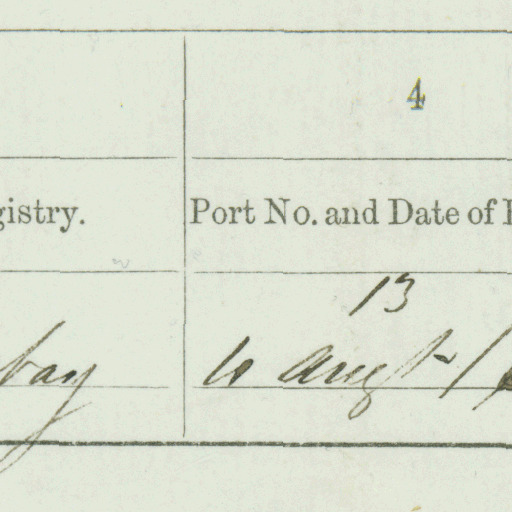 4
gistry.
Port No. and Date of
13
bay
10 Augt